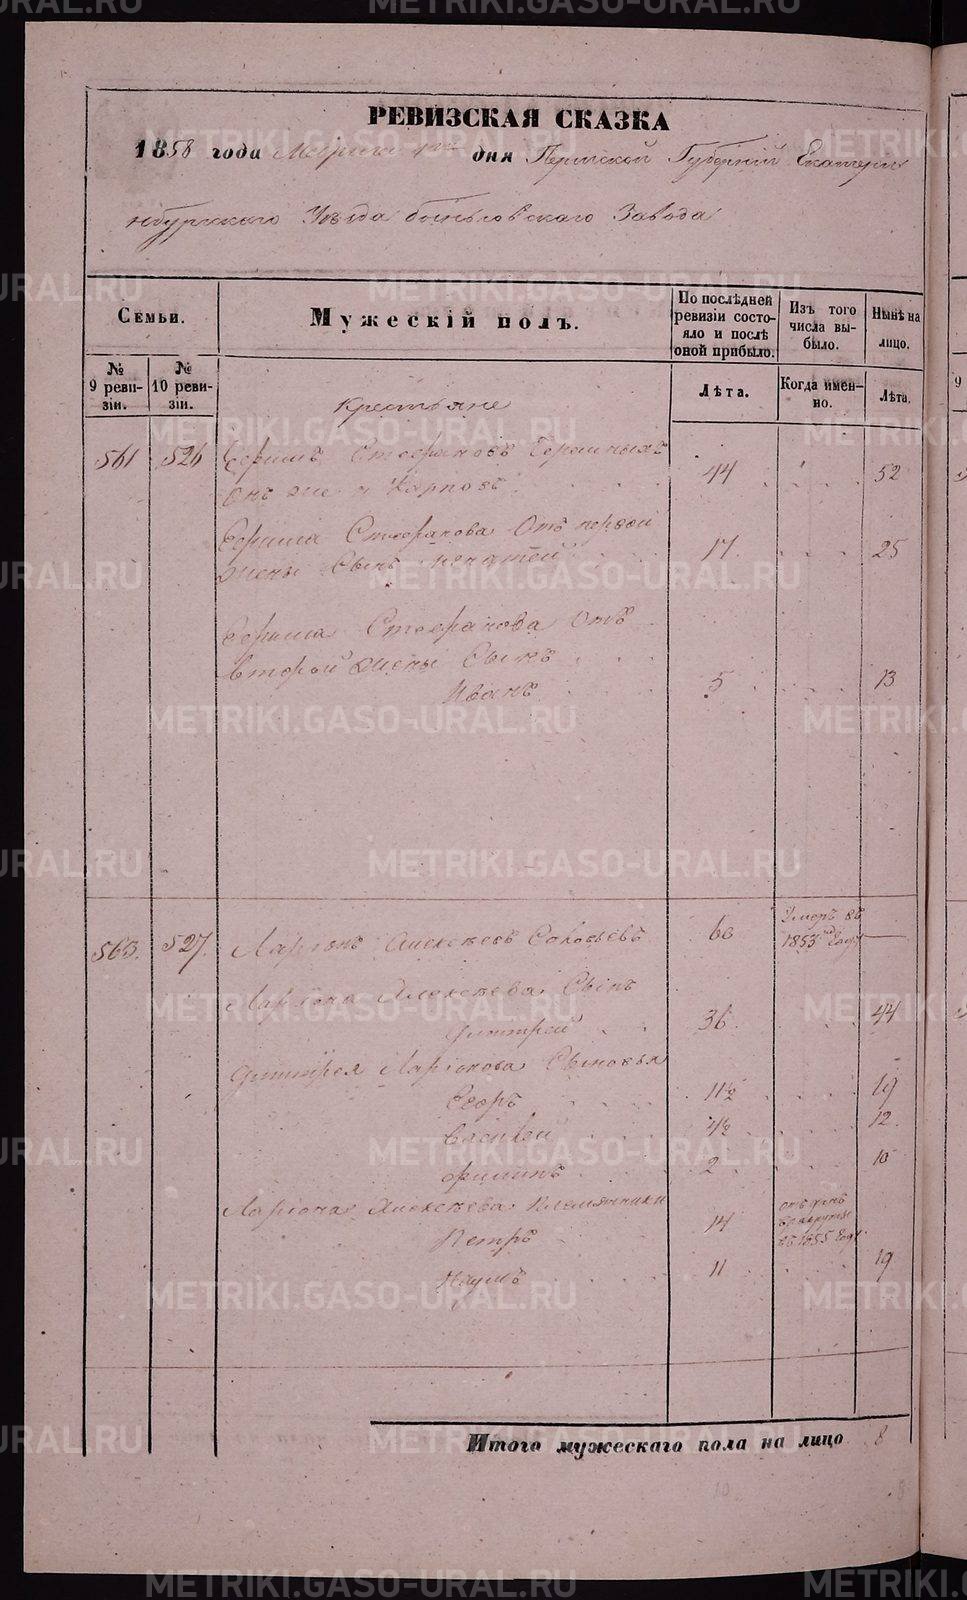 РЕВИЗСКАЯ СКАЗКА
1858 года дня Пермской Губерніи Екатерин
нбургскаго Уѣзда Завода
Семьи.
Мужескій полъ.
По послѣдней ревизіи состояло и послѣ оной прибыло.
Изъ того числа выбыло.
Нынѣ на лицо.
№ 9 ревизіи.
№ 10 ревизіи.
Лѣта.
Когда именно.
Лѣта.
Крестьяне
561 526 Ефимъ Стефановъ 44 52
Онъ же и Карповъ
Ефима Стефанова Отъ первой
жены Сынъ 17 25
Ефима Стефанова Отъ
второй жены Сынъ
Иванъ 5 13
563. 527. Ларіонъ Алексѣевъ Соловьевъ 60 Умеръ въ 1853 Году
Ларіона Алексѣева Сынъ
Дмитрей 36 44
Дмитрея Ларіонова Сыновья
Егоръ 11½ 19
4½ 12
Филипъ 2 10
Ларіона Алексѣева Племянники
Петръ 14 въ рекруты въ 1855 Году
Наумъ 11 19
Итого мужескаго пола на лицо 8